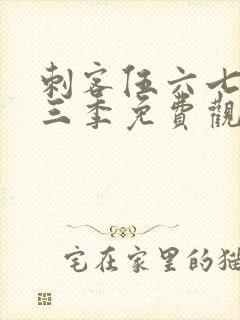 刺客伍六七
三季免費觀
宅在家里的猫